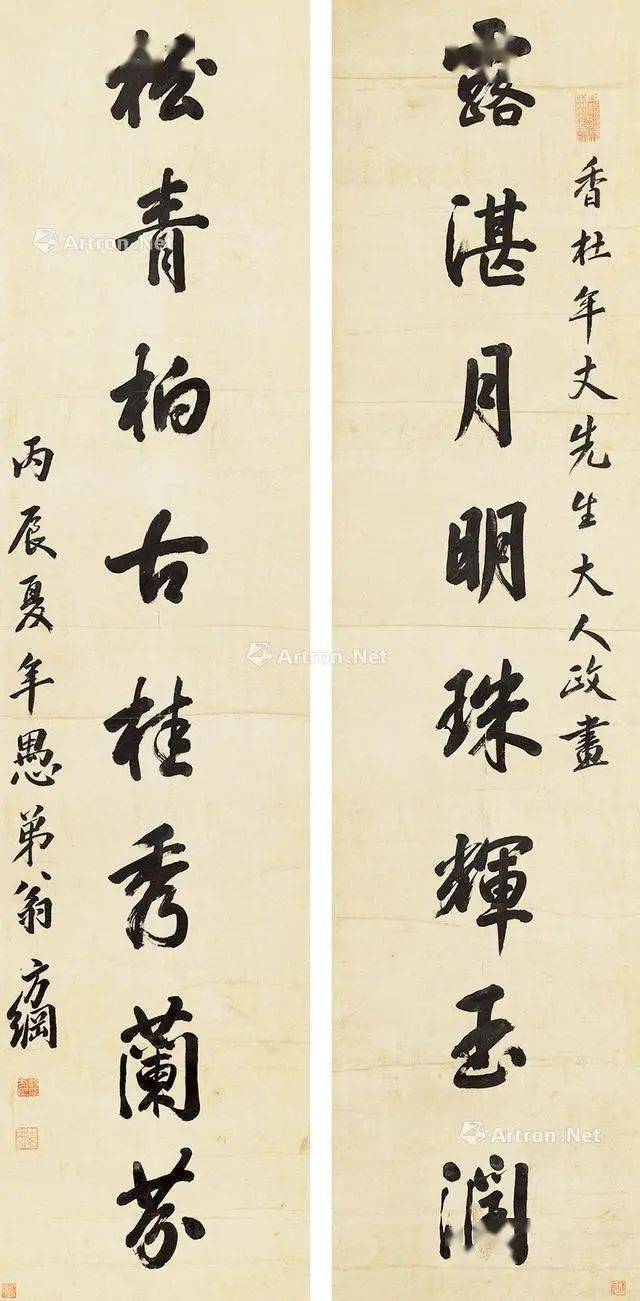 香杜年丈先生大人政畫
露湛月明珠輝玉潤
松青柏古桂秀蘭芬
丙辰夏年愚弟翁方綱
Artron.Net
Artron.Net
Artron.Net